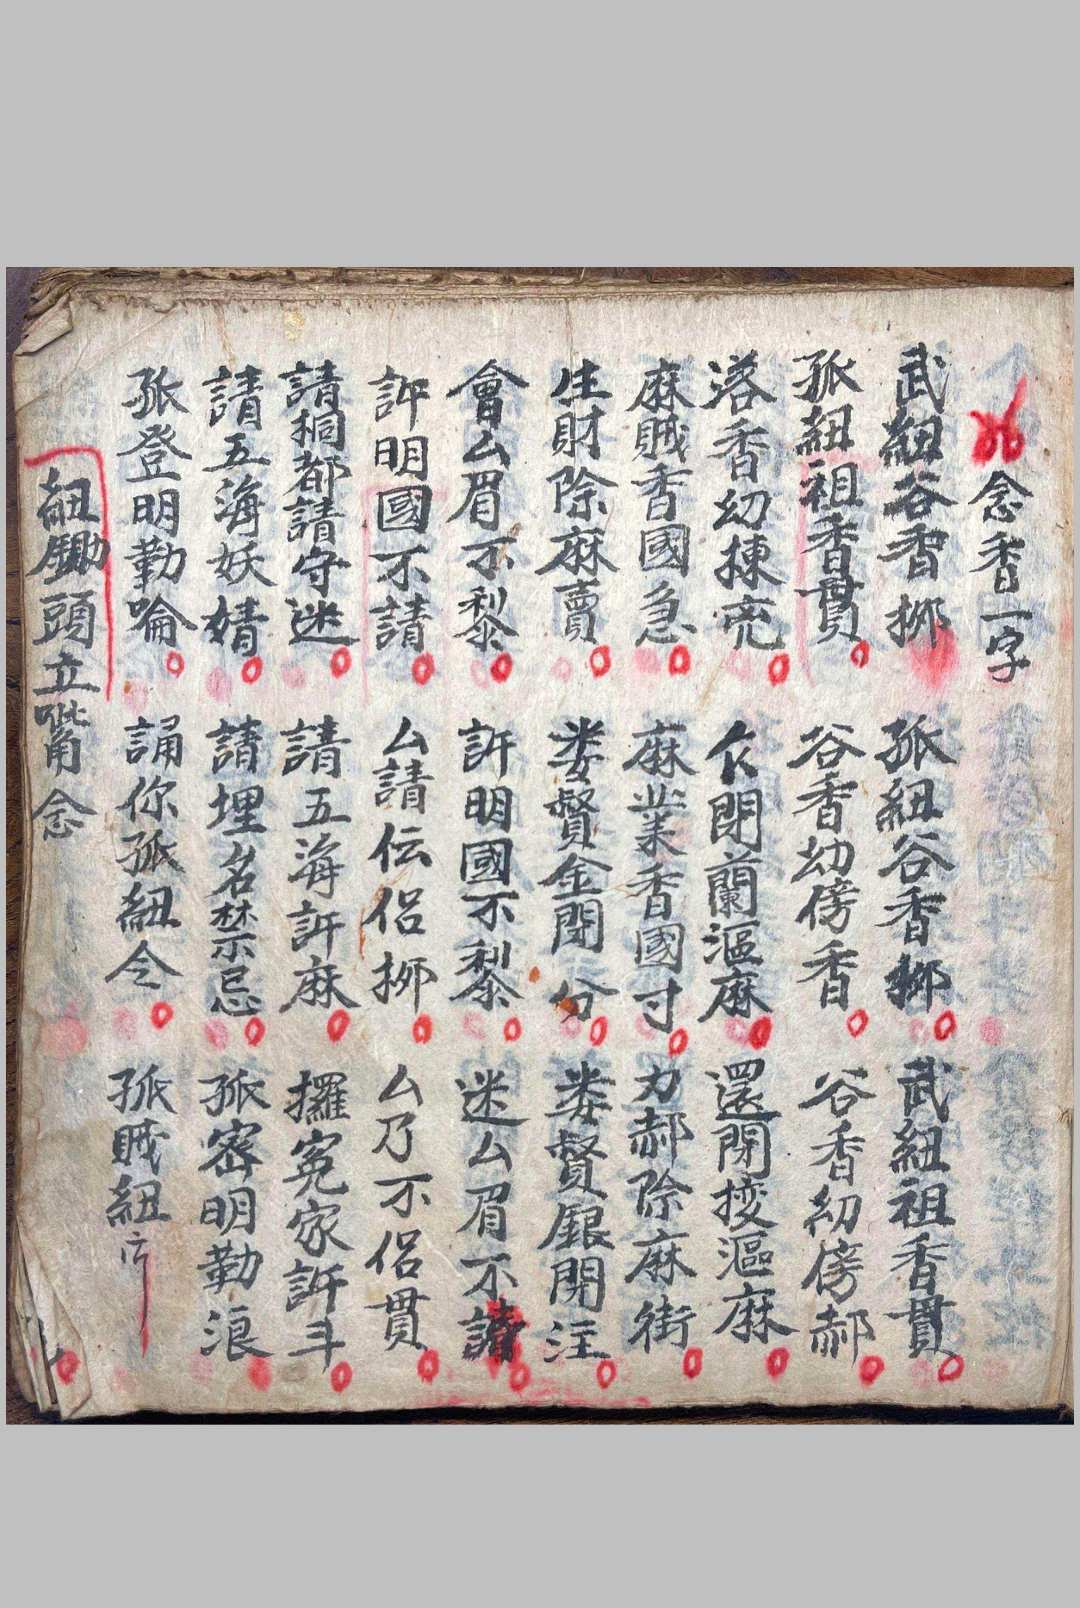 念香一字
武紐谷香挷 孤紐谷香挷 武紐祖香貫
孤紐祖香貫 谷香幼傍香 谷香幼傍郝
落香幼揀亮 㐅閉蘭漚麻 還閉挍漚麻
麻賊香國急 麻業香國寸 力郝除麻街
生財除麻賣 娄賢金開分 娄賢銀開注
會厶眉不黎 訴明國不黎 迷厶眉不請
訴明國不請 厶請伝侣挷 厶乃不侣貫
請桐都請守迷 請五海訴麻 攞寃家訴斗
請五海妖婧 請埋名禁忌 孤密明勤浪
孤登明勤喻 誦你孤紐令 孤賊紐
紐鋤頭立觜念